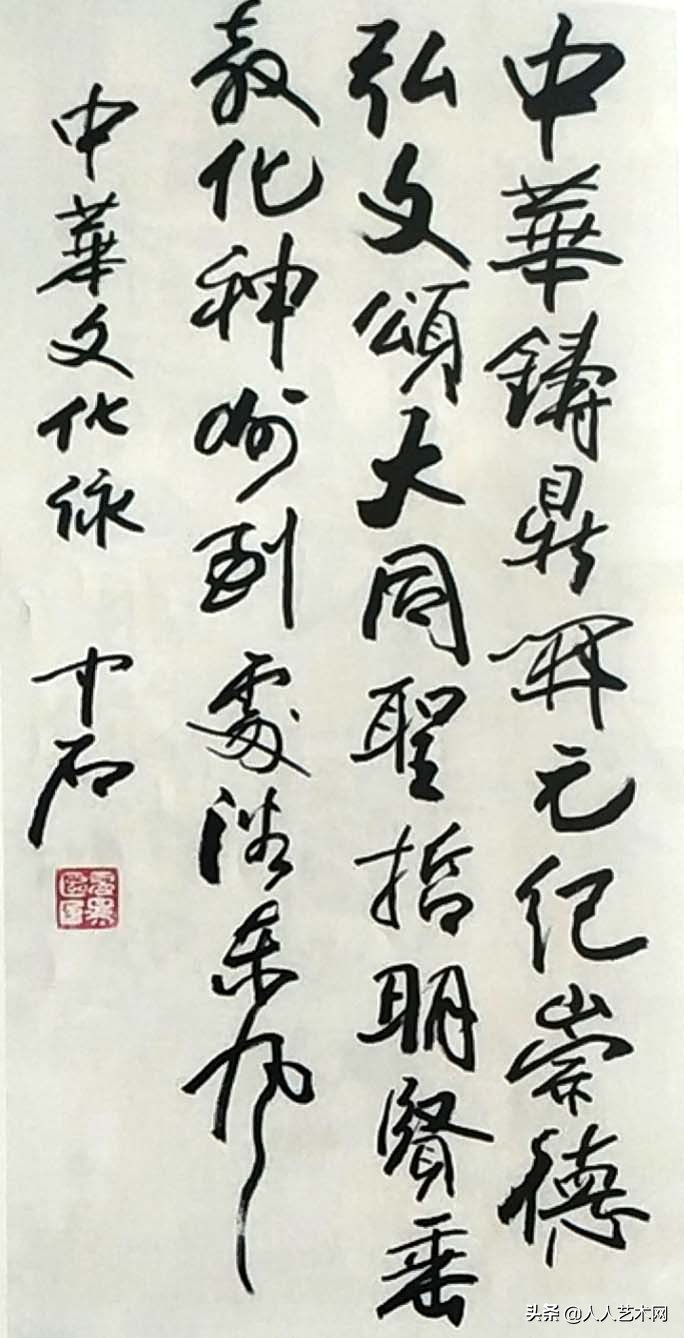 中華鑄鼎開元纪崇德
弘文頌大同聖哲明賢垂
教化神州到處沐东风
中華文化咏 中石
头条 @人人艺术网